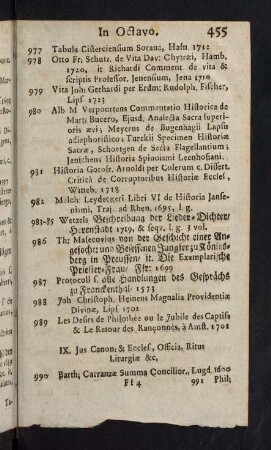 In Octavo. 455
977 Tabula Cisterciensium Sorana, Hafn 1712
978 Otto Fr: Schutz. de Vita Dav: Chytræi, Hamb.
1720. it Richardi Comment de vita &
scriptis Professor. Jenensium, Jena 1710
979 Vita Joh: Gerhardi per Erdm: Rudolph. Fischer,
Lipf 1723
980 Alb M Verpoortens Commentatio Historica de
Mart: Bucero, Ejusd. Analecta Sacra superi-
oris ævi; Meyerus de Bugenhagii Lapsu
adiaphoristico; Turckii Specimen Historiæ
Sacræ, Schortgen de Secta Flagellantium;
Jenichens Historia Spinosismi Leenhofiani.
981 Historia Gotofr. Arnoldi per Colerum c. Dissert.
Critica de Corruptoribus Historiæ Eccles,
Witteb. 1718
982 Melch: Leydeckeri Libri VI de Historia Janse-
nismi, Traj. ad Rhen. 1695, l. g.
981-85 Wetzels Beschreibung der Lieder-Dichter,
Herrnstadt 1719, & seqv. l. g. 3 vol.
986 Th: Malecovius von der Geschicht einer An-
gefocht: und Besessnen Jungfer zu Königs-
berg in Preussen, it. Die Exemplarische
Priester-Frau, Ffr: 1699
987 Protocoll f. alle Handlungen des Gesprächs
zu Franckenthal 1573
988 Joh Christoph. Heinens Magnalia Providentiæ
Divinæ, Lips 1701
989 Les Desirs de Philothée ou le Jubile des Captifs
& Le Retour des Rançonnés, à Amst. 1701
IX. Jus Canon: & Eccles', Officia, Ritus
Liturgiæ &c,
990 Barth; Carranzæ Summa Concilior., Lugd. 1600
Ff 4 991 Phil;